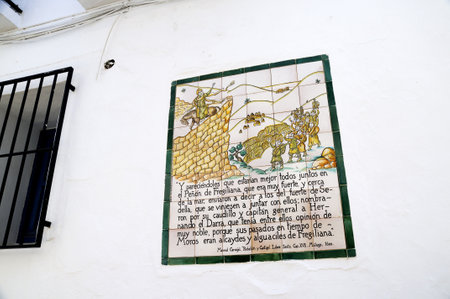 "Y pareciéndoles que estarían mejor todos juntos en
el Peñón de Fregiliana, que era muy fuerte y cerca
de la mar, enviaron a decir a los del fuerte de Se-
della, que se viniesen a juntar con ellos; nombra-
ron por su caudillo y capitán general a Her-
nando el Darra, que tenía entre ellos opinión de
muy noble, porque sus pasados en tiempo de
Moros eran alcaydes y alguaciles de Fregiliana."